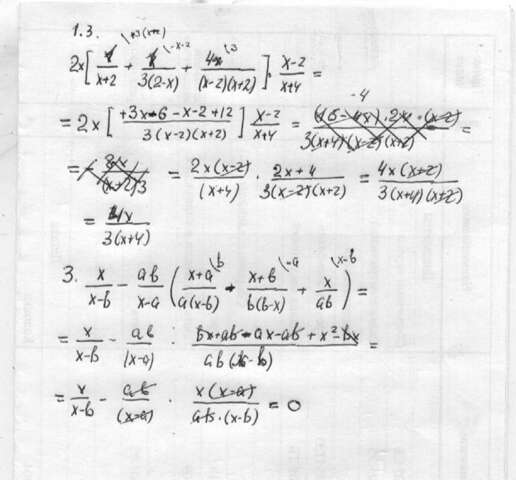 1.3.
2x[1/(x+2) \+3(x+2) + 1/(3(2-x)) \-x-2 + 4/((x-2)(x+2)) \3] · (x-2)/(x+4) =
= 2x[(+3x-6-x-2+12)/(3(x-2)(x+2))] (x-2)/(x+4) = =
= = (2x(x-2))/((x+4)) · (2x+4)/(3(x-2)(x+2)) = (4x(x+2))/(3(x+4)(x+2))
= 4x/(3(x+4))
3. x/(x-b) - ab/(x-a) ((x+a)/(a(x-b)) \b + (x+b)/(b(b-x)) \-a + x/(ab) \x-b) =
= x/(x-b) - ab/(x-a) · (bx+ab-ax-ab+x²-bx)/(ab(x-b)) =
= x/(x-b) - ab/((x-a)) · (x(x-a))/(ab·(x-b)) = 0